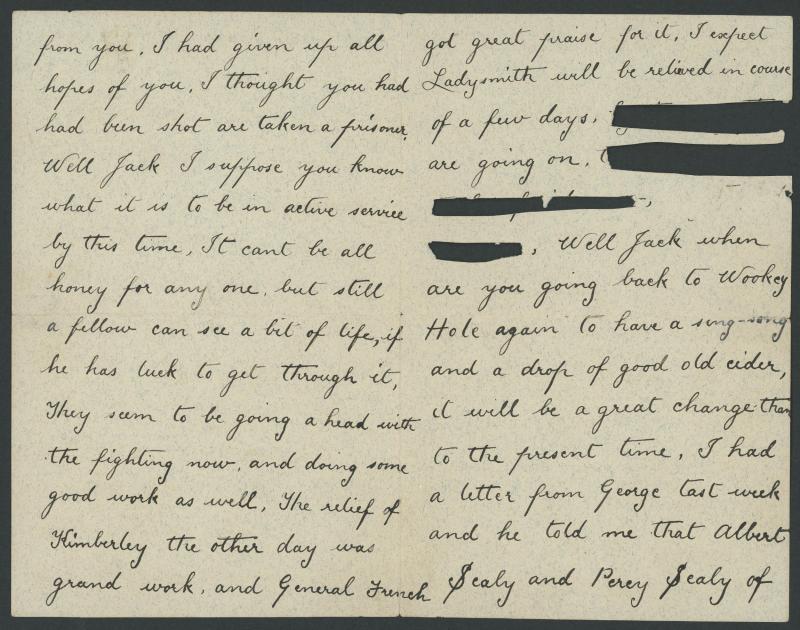 from you, I had given up all
hopes of you, I thought you had
had been shot are taken a prisoner,
Well Jack I suppose you know
what it is to be in active service
by this time, It cant be all
honey for any one, but still
a fellow can see a bit of life, if
he has luck to get through it,
They seem to be going a head with
the fighting now, and doing some
good work as well, The relief of
Kimberley the other day was
grand work, and General French
got great praise for it, I expect
Ladysmith will be relieved in course
of a few days,
are going on,
, Well Jack when
are you going back to Wookey
Hole again to have a sing-song
and a drop of good old cider,
it will be a great change than
to the present time, I had
a letter from George last week
and he told me that Albert
Sealy and Percy Sealy of